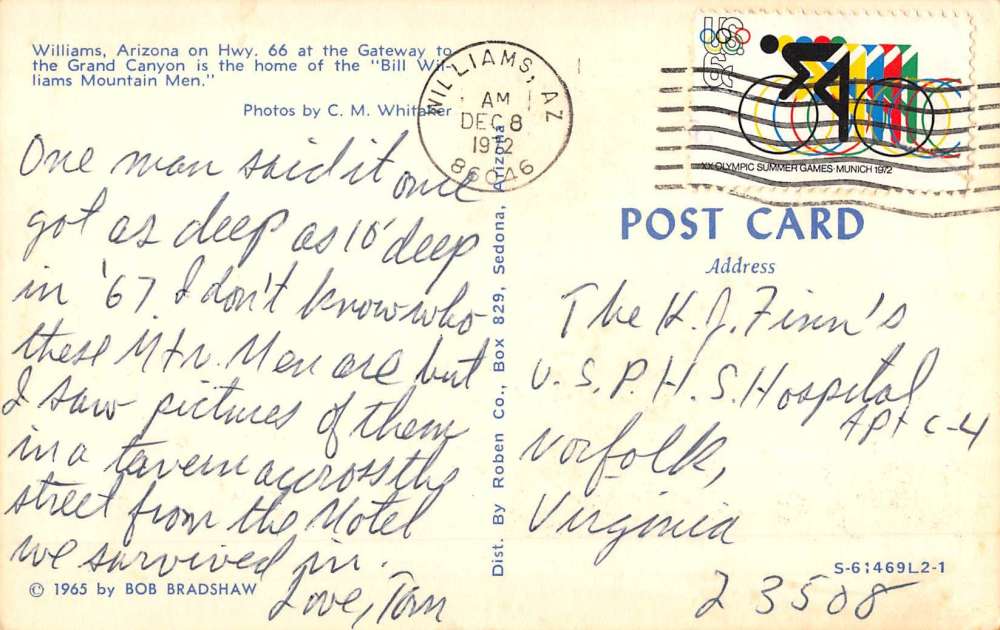 Williams, Arizona on Hwy. 66 at the Gateway to
the Grand Canyon is the home of the "Bill Wil-
liams Mountain Men."
Photos by C. M. Whitaker
One man said it once
got as deep as 10' deep
in '67. I don't know who
these Mtn. Men are but
I saw pictures of them
in a tavern accross the
street from the Motel
we survived in.
Love, Tom
© 1965 by BOB BRADSHAW
Dist. By Roben Co., Box 829, Sedona, Arizona
WILLIAMS, AZ
AM
DEC 8
1972
86046
US
8c
XX OLYMPIC SUMMER GAMES·MUNICH 1972
POST CARD
Address
The K. J. Finn's
U.S.P.H.S. Hospital
APt C-4
Norfolk,
Virginia
23508
S-61469L2-1